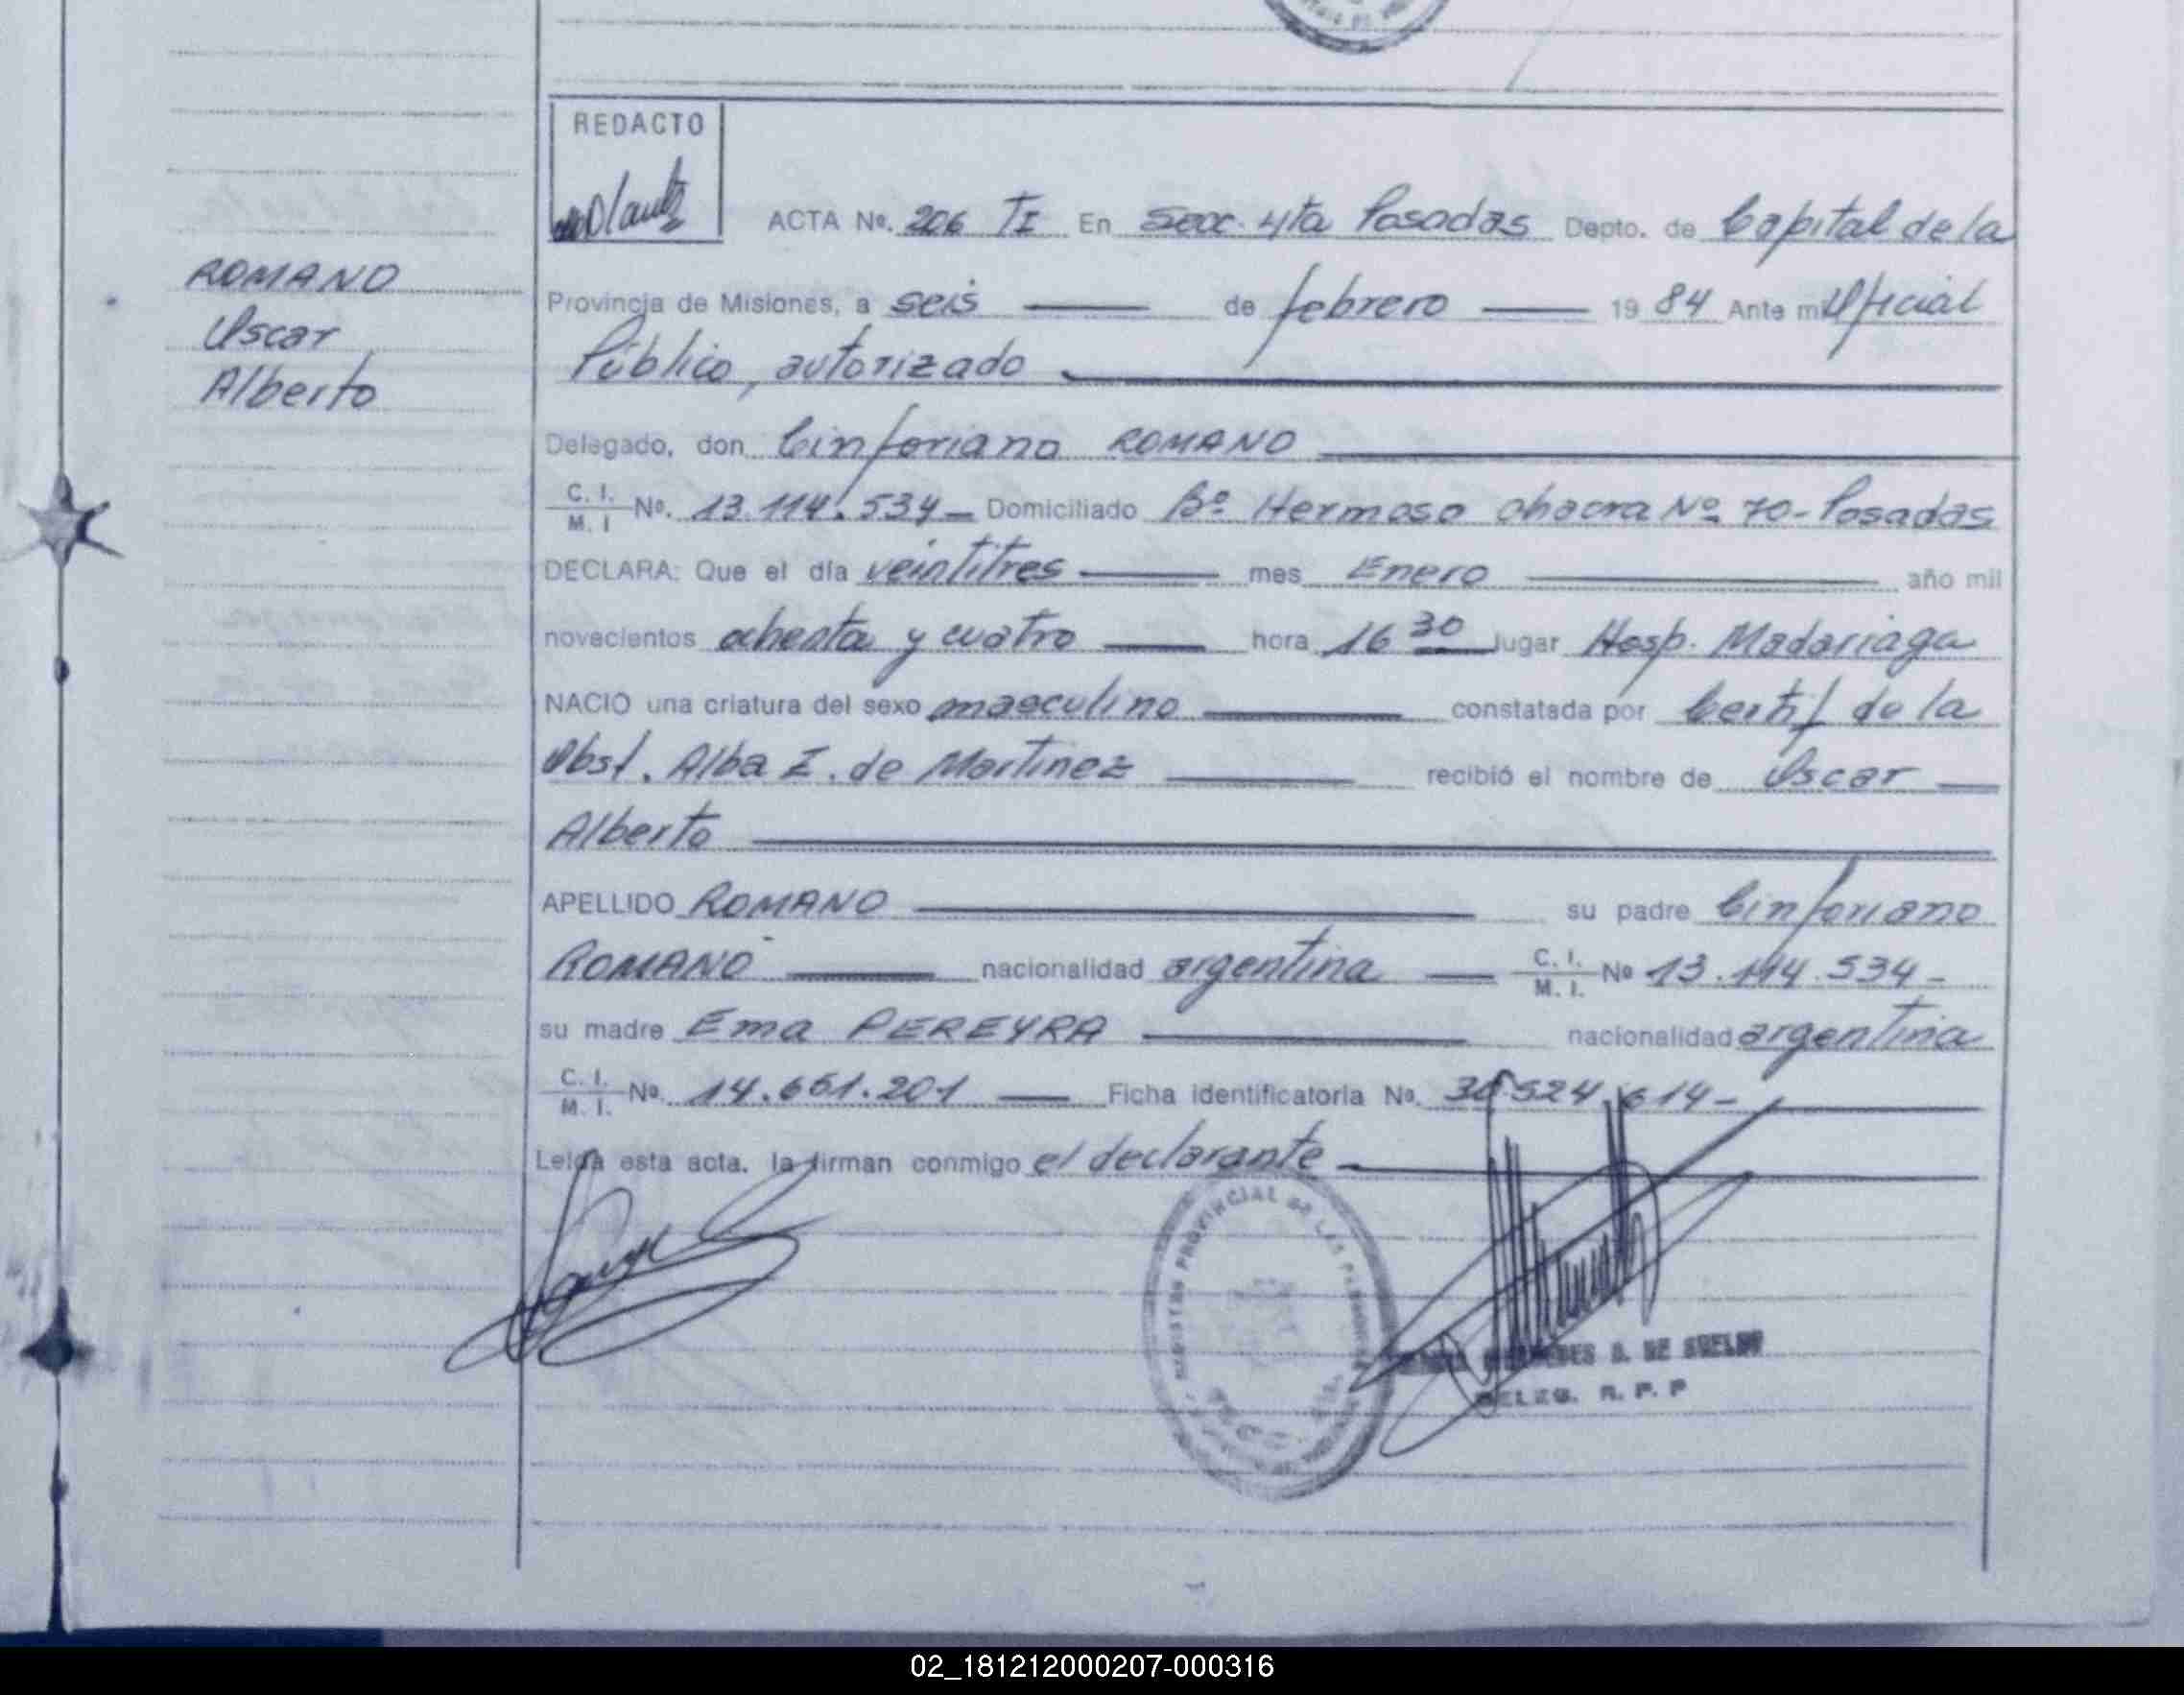 REDACTO
ACTA No. 206 TI En Secc. 4ta Posadas Depto. de Capital de la
ROMANO
Oscar
Alberto
Provincia de Misiones, a seis de febrero 1984 Ante mi Oficial
Público, autorizado
Delegado, don Cinforiano ROMANO
C. I. / M. I No. 13.114.534- Domiciliado Bº Hermoso chacra Nº 70- Posadas
DECLARA: Que el día veintitres mes Enero año mil
novecientos ochenta y cuatro hora 16 30 lugar Hosp. Madariaga
NACIO una criatura del sexo masculino constatada por Certif de la
Obst. Alba Z. de Martinez recibió el nombre de Oscar
Alberto
APELLIDO ROMANO su padre Cinforiano
ROMANO nacionalidad argentina C. I. / M. I. No 13.114.534-
su madre Ema PEREYRA nacionalidad argentina
C. I. / M. I. No. 14.651.201 Ficha identificatoria No. 30.524.614-
Leida esta acta, la firman conmigo el declarante
REGISTRO PROVINCIAL DE LAS PERSONAS
DE SUELDO
DELEG. R. P. P
02_181212000207-000316